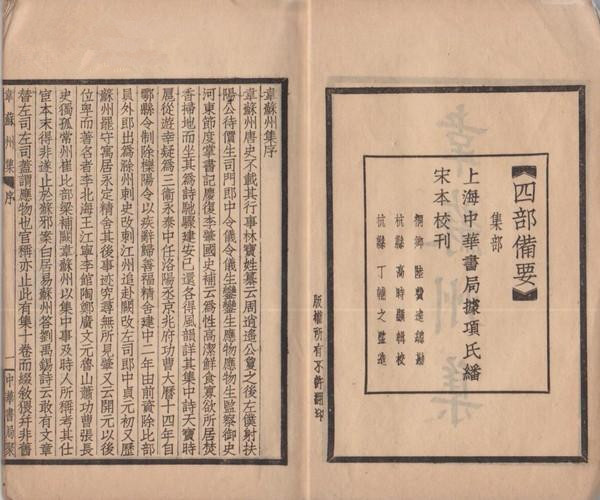 《四部備要》
集部
上海中華書局據項氏繙
宋本校刊
桐鄉 陸費逵總勘
杭縣 高時顯輯校
杭縣 丁輔之監造
版權所有不許翻印
韋蘇州集序
韋蘇州唐史不載其行事林寶姓纂云周逍遙公敻之後左僕射扶
陽公待價生司門郎中令儀令儀生鑾鑾生應物應物生監察御史
河東節度掌書記慶復李肇國史補云為性高潔鮮食寡欲所居焚
香掃地而坐其為詩馳驟建安已還各得風韻詳其集中詩天寶時
扈從遊幸疑為三衛永泰中任洛陽丞京兆府功曹大曆十四年自
鄠縣令制除櫟陽令以疾辭歸善福精舍建中二年由前資除比部
員外郎出為滁州刺史改刺江州追赴闕改左司郎中貞元初又歷
蘇州罷守寓居永定精舍其後事迹究尋無所見肇又云開元以後
位卑而著名者李北海王江寧李館陶鄭廣文元魯山蕭功曹張長
史獨孤常州崔比部梁補闕韋蘇州以集中事及時人所稱考其仕
宦本末得非遂止於蘇邪案白居易蘇州答劉禹錫詩云敢有文章
替左司左司蓋謂應物也官稱亦止此有集十卷而綴敘猥并非舊
韋蘇州集 序 一 中華書局聚